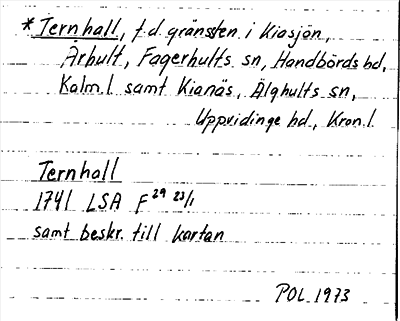 *Ternhall, f.d. gränssten i Kiasjön,
Årbult, Fagerhults sn, Handbörds hd,
Kalm.l samt Kianäs, Älghults sn,
Uppvidinge hd, Kron.l
Ternhall
1741 LSA F²⁹ ²³/₁
samt beskr. till kartan
POL 1973